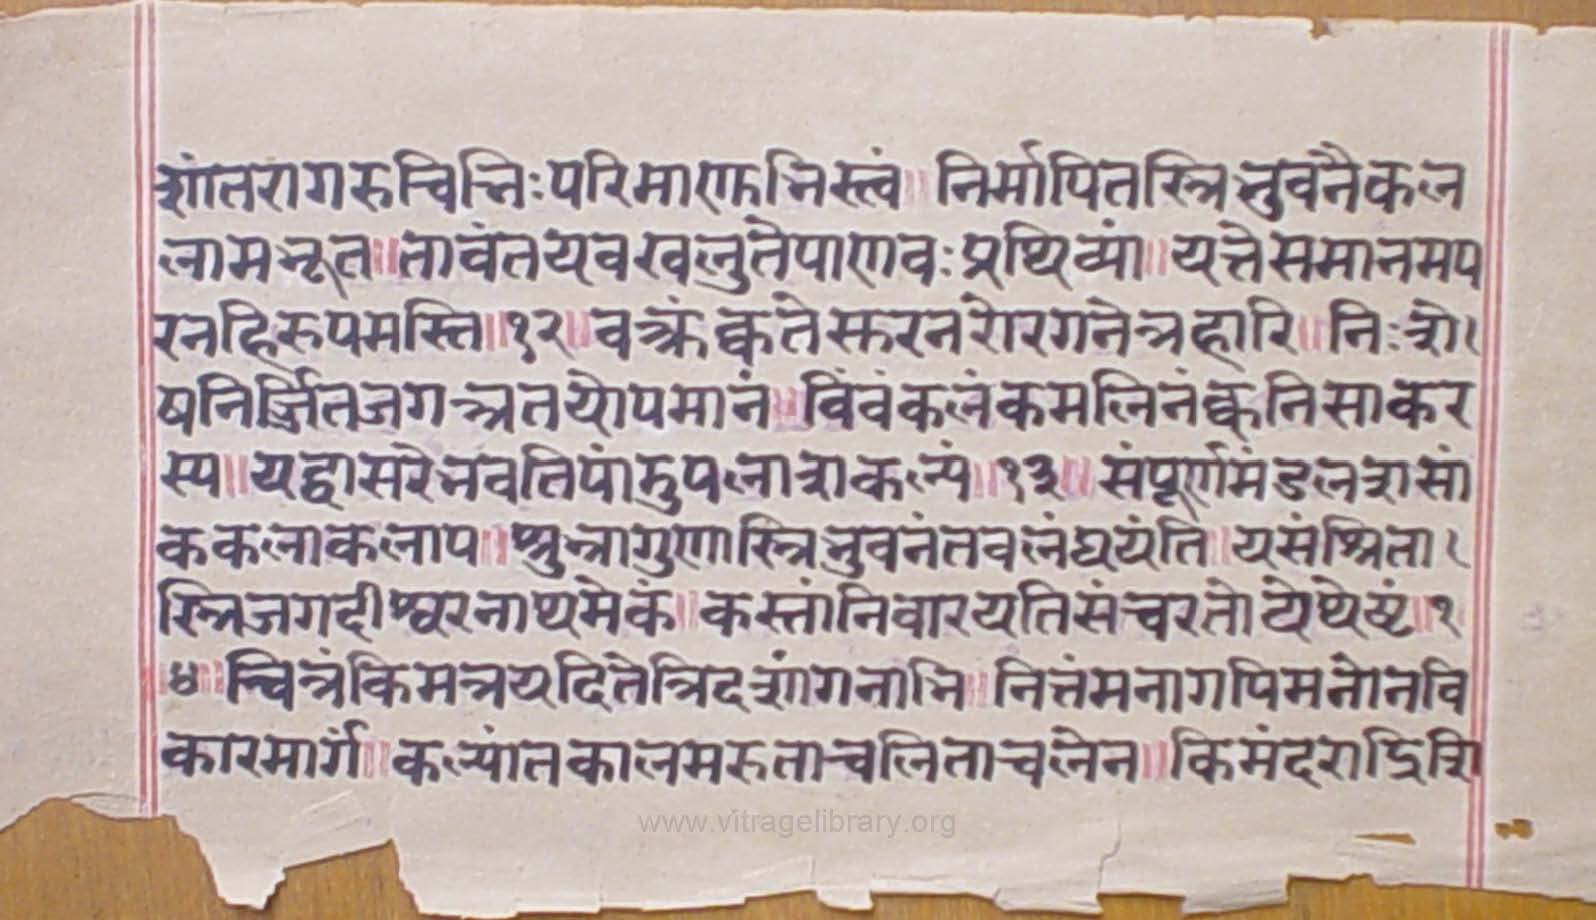 शांतरागरुचिभिःपरिमाणुभिस्त्वं॥ निर्मापितस्त्रिभुवनैकल
लामभूत॥तावंतयवखलुतेपाणवःप्रथिव्यां॥ यत्तेसमानमप
रनहिरूपमस्ति॥१२॥वक्त्रंक्वतेसुरनरोरगनेत्रहारि॥ निःशे।
षनिर्जितजगत्त्रतयोपमानं॥ विंवंकलंकमलिनंक्वनिसाकर
स्य॥ यद्वासरेभवतिपांडुपलाशकल्पं॥१३॥ संपूर्णमंडलशसां
ककलाकलाप॥ शुभ्रागुणास्त्रिभुवनंतवलंघयंति॥ यसंश्रिता।
स्त्रिजगदीश्वरनाथमेकं॥ कस्तांनिवारयतिसंचरतोयेथेष्टं॥१
४॥ चित्रंकिमत्रयदितेत्रिदशांगनाभि॥ नित्तंमनागपिमनोनवि
कारमार्गं॥ कल्पांतकालमरुताचलिताचलेन॥ किमंदराद्रिशि
www.vitragelibrary.org